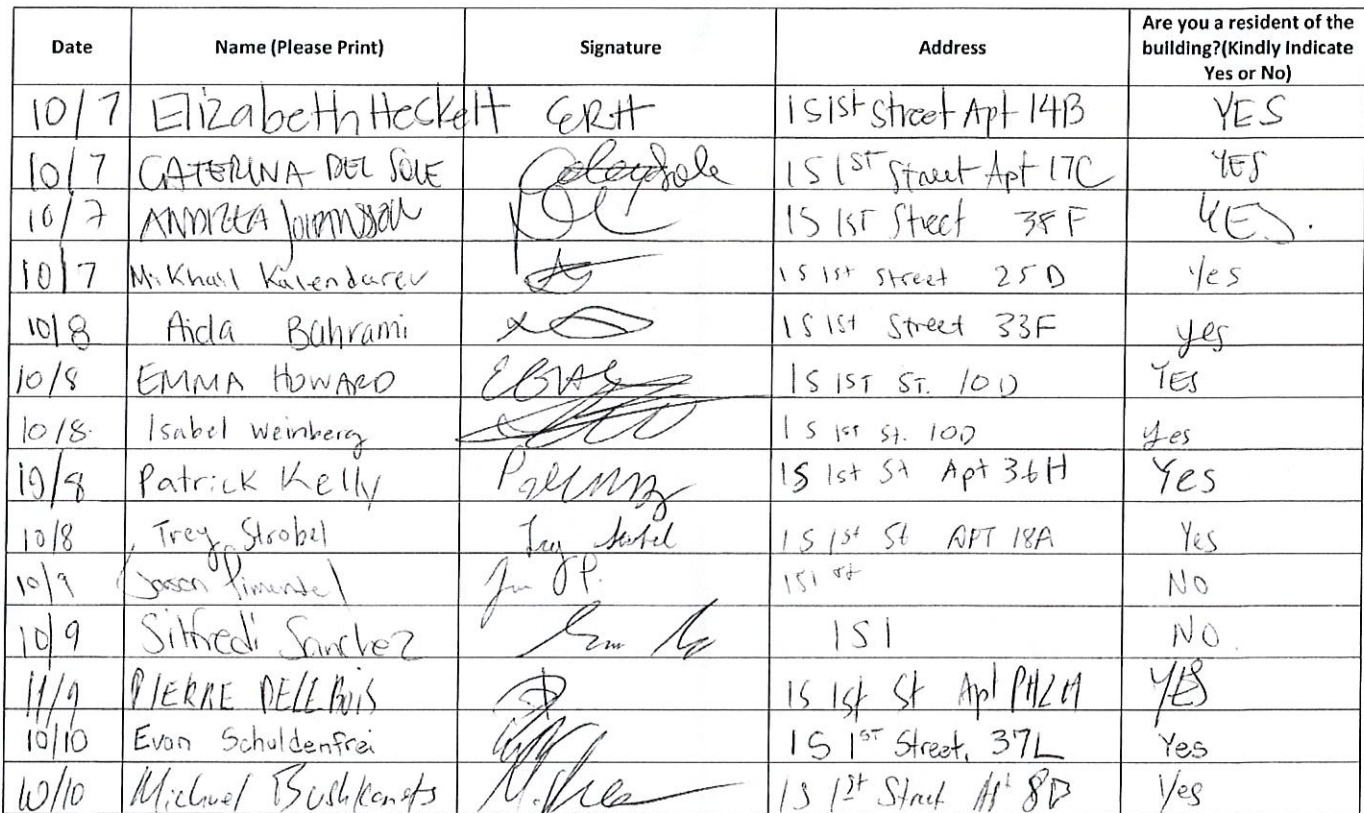 Date Name (Please Print) Signature Address Are you a resident of the building?(Kindly Indicate Yes or No)
10/7 Elizabeth Heckelt ERH 1 S 1st Street Apt 14B YES
10/7 CATERINA DEL SOLE 1 S 1ST Street Apt 17C YES
10/7 ANDREA 1S 1ST Street 38F YES.
10/7 Mikhail Kalendarev 1 S 1st Street 25D Yes
10/8 Aida Bahrami 1 S 1st Street 33F yes
10/8 EMMA HOWARD 1S 1ST ST. 10D YES
10/8 Isabel Weinberg 1 S 1ST St. 10D yes
10/8 Patrick Kelly 1S 1st St Apt 36H Yes
10/8 Trey Strobel Trey Strobel 1 S 1st St APT 18A Yes
10/9 Jason Pimentel 1S1 st NO
10/9 Sitfredi Sanchez 1S1 NO.
11/9 PIERRE 1S 1st St Apt YES
10/10 Evan Schuldenfrei 1S 1ST Street, 37L Yes
10/10 Michael Bushkanets 1 S 1st Street Apt 8D Yes